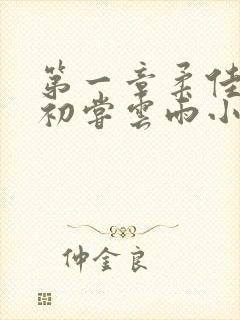 第一章柔佳
初尝雲雨小
仲金良